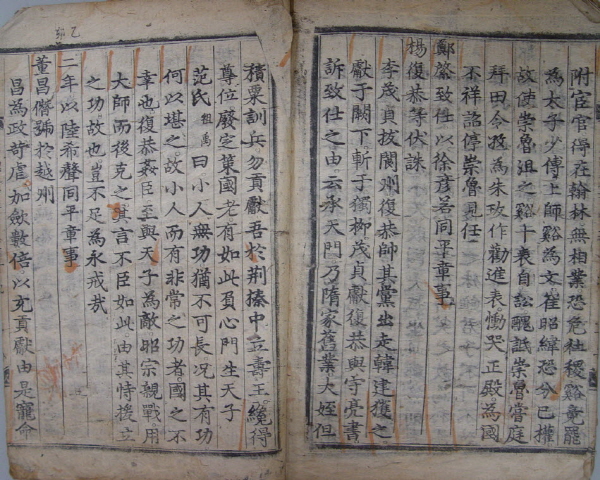 附宦官得在翰林無相業恐危社稷谿竟罷
為太子少傅上師谿為文崔昭緯恐分己權
故使崇魯沮之谿十表自訟醜詆崇魯嘗庭
拜田令孜為朱玫作勸進表慟哭正殿為國
不祥詔停崇魯見任
鄭綮致仕以徐彥若同平章事
楊復恭等伏誅
李茂貞拔閬州復恭帥其黨出走韓建獲之
獻于闕下斬于獨柳茂貞獻復恭與守亮書
訴致仕之由云承天門乃隋家舊業大姪但
積粟訓兵勿貢獻吾於荊榛中立壽王纔得
尊位廢定策國老有如此負心門生天子
范氏祖禹曰小人無功猶不可長况其有功
何以堪之故小人而有非常之功者國之不
幸也復恭姦臣至與天子為敵昭宗親戰用
大師而後克之其言不臣如此由其恃援立
之功故也豈不足為永戒哉
乙卯
二年以陸希聲同平章事
董昌僭號於越州
昌為政苛虐加斂數倍以充貢獻由是寵命